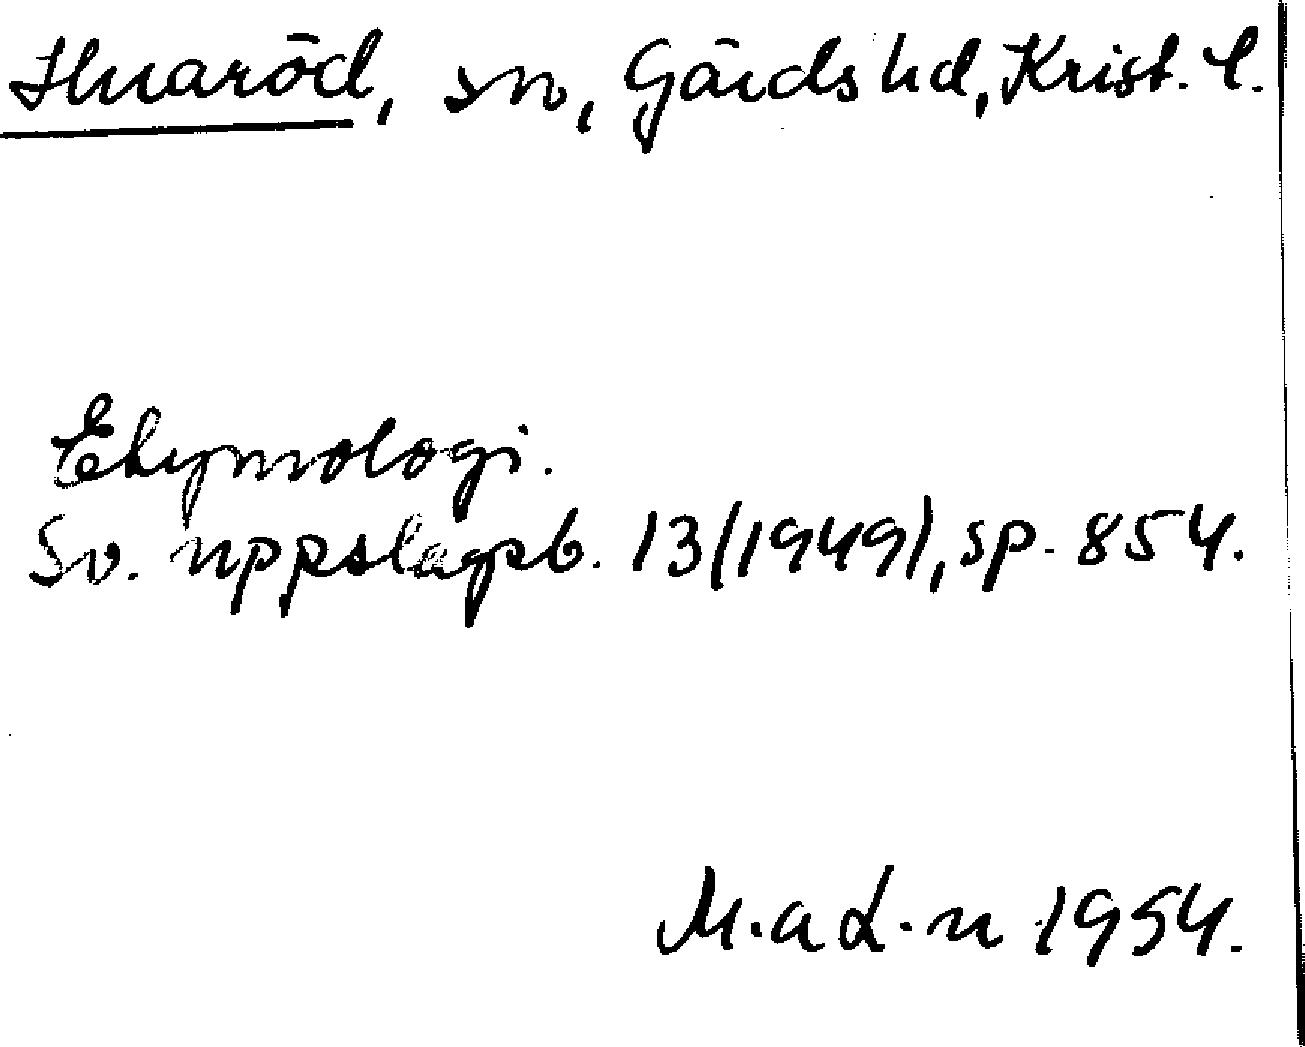 Huaröd, sn, Gärds hd, Krist. l.
Etymologi.
Sv. uppslagsb. 13(1949), sp. 854.
1954.